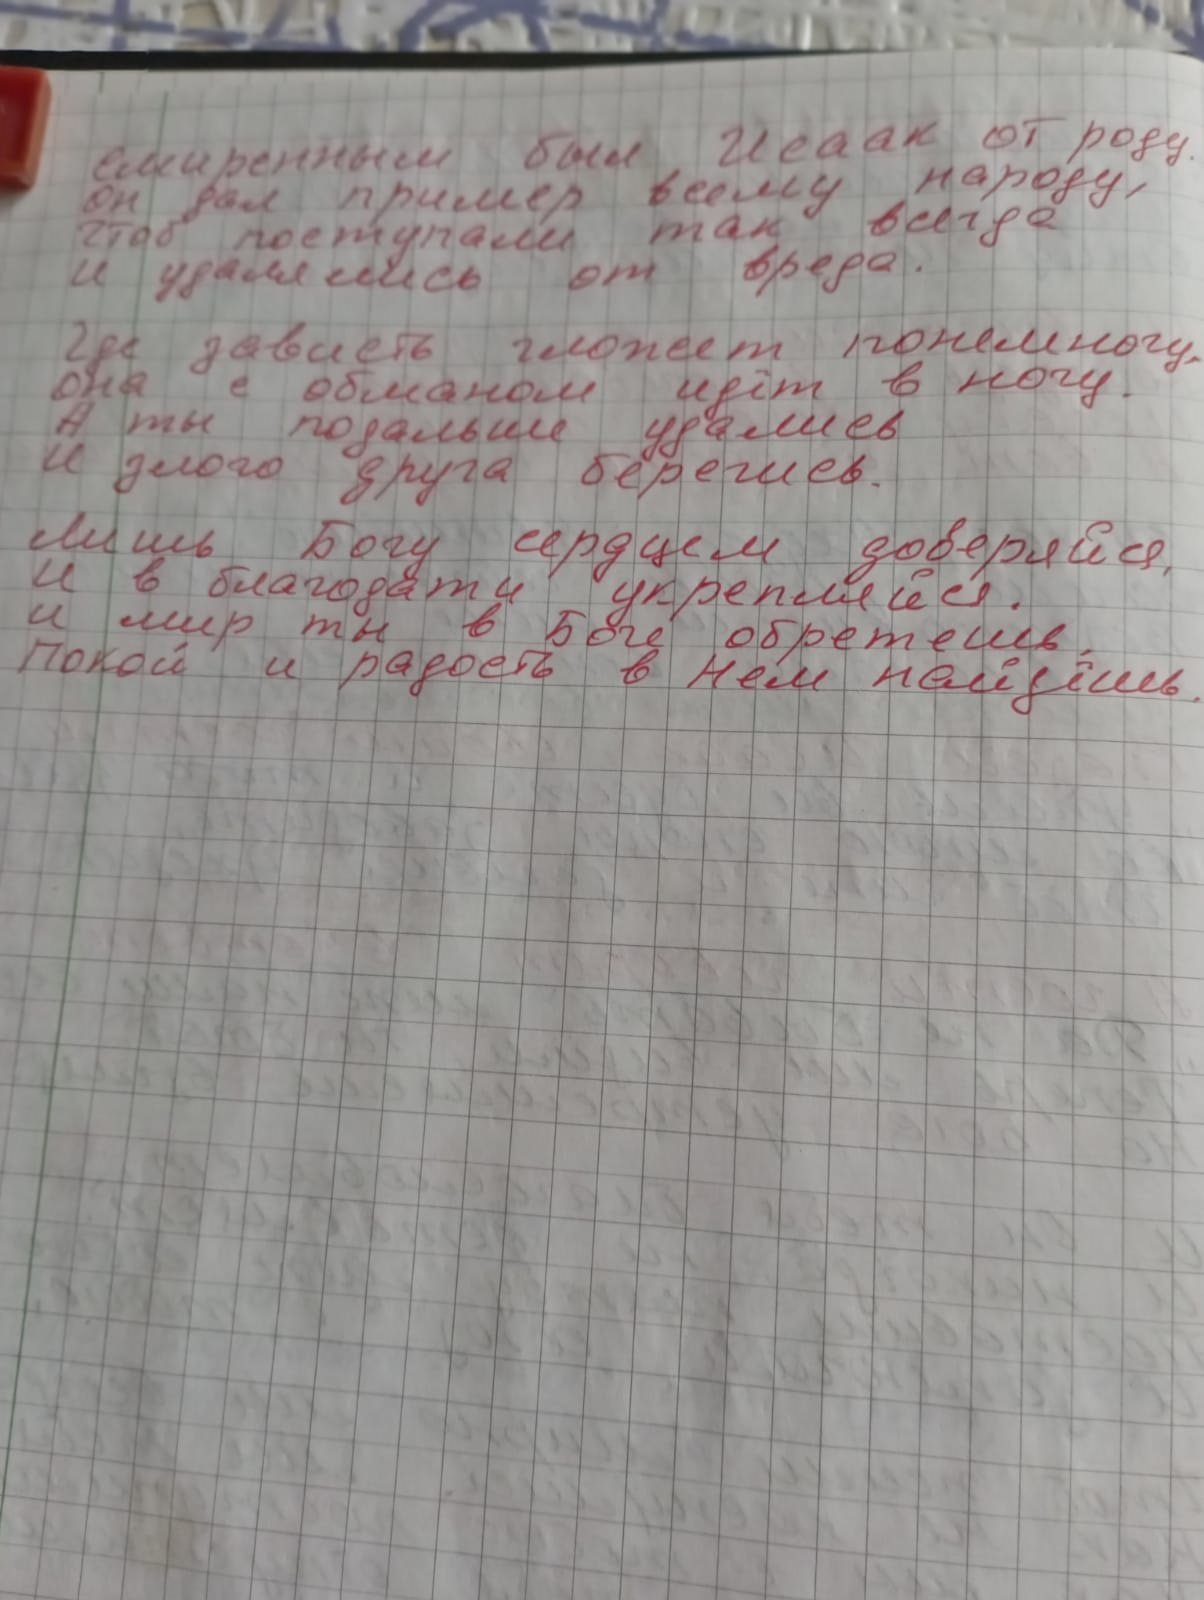 Смиренным был Исаак от роду.
он дал пример всему народу,
чтоб поступали так всегда
и удалялись от вреда.
Где зависть гложет понемногу,
она с обманом идёт в ногу.
А ты подальше удались
И злого друга берегись.
Лишь Богу сердцем доверяйся,
И в благодати укрепляйся.
и мир ты в Боге обретешь,
Покой и радость в Нем найдёшь.